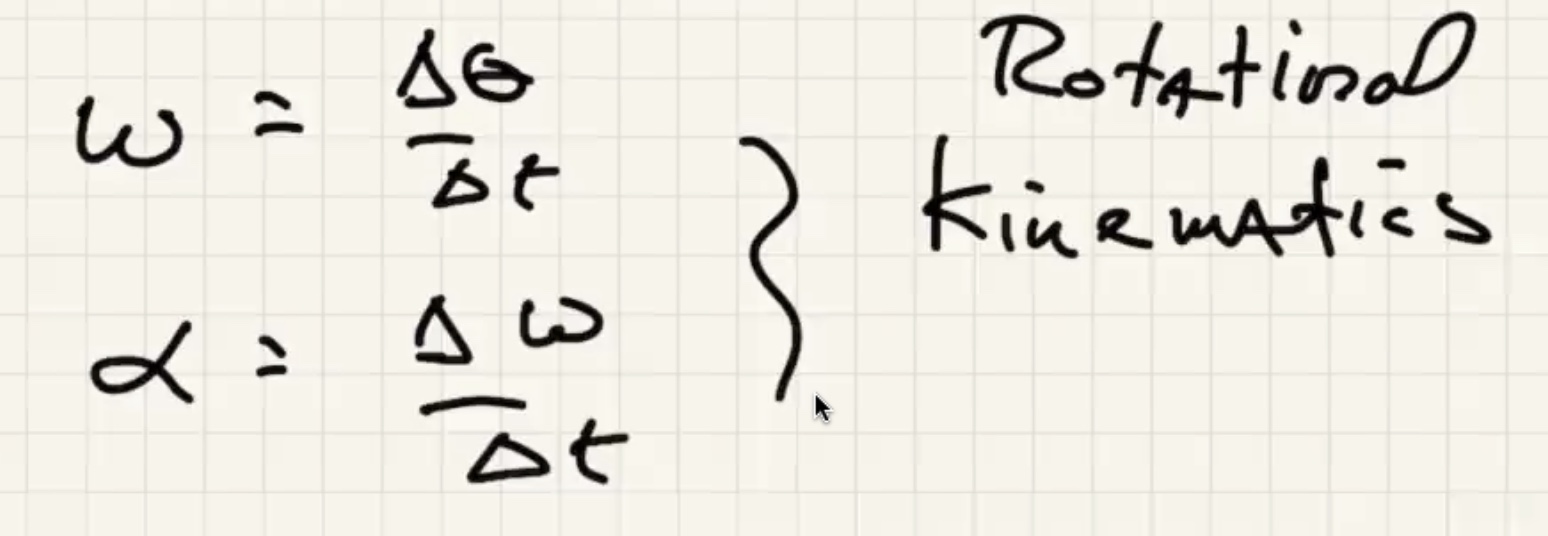 ω = Δθ/Δt
α = Δω/Δt
Rotational
Kinematics